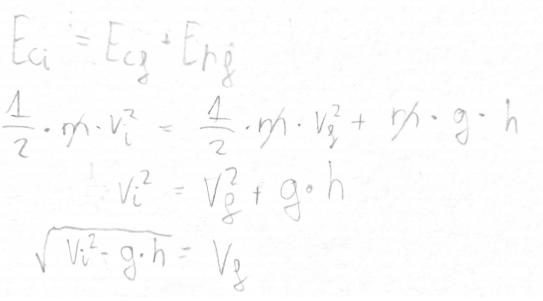 E_{ci} = E_{cf} + E_{pf}
\frac{1}{2} · m · v_i^2 = \frac{1}{2} · m · v_f^2 + m · g · h
v_i^2 = v_f^2 + g · h
\sqrt{v_i^2 - g · h} = v_f